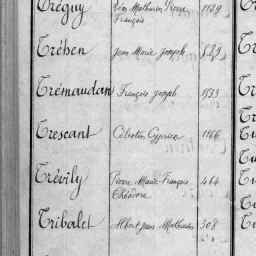 Tréguy Léon Mathurin Pierre 1129
François
Tréhen Jean Marie Joseph 549
Trémaudan François Joseph 1533
Trescant Célestin Cyprien 1166
Trévily Pierre Marie François 464
Théodore
Tribalet Albert Jean Mathurin 308